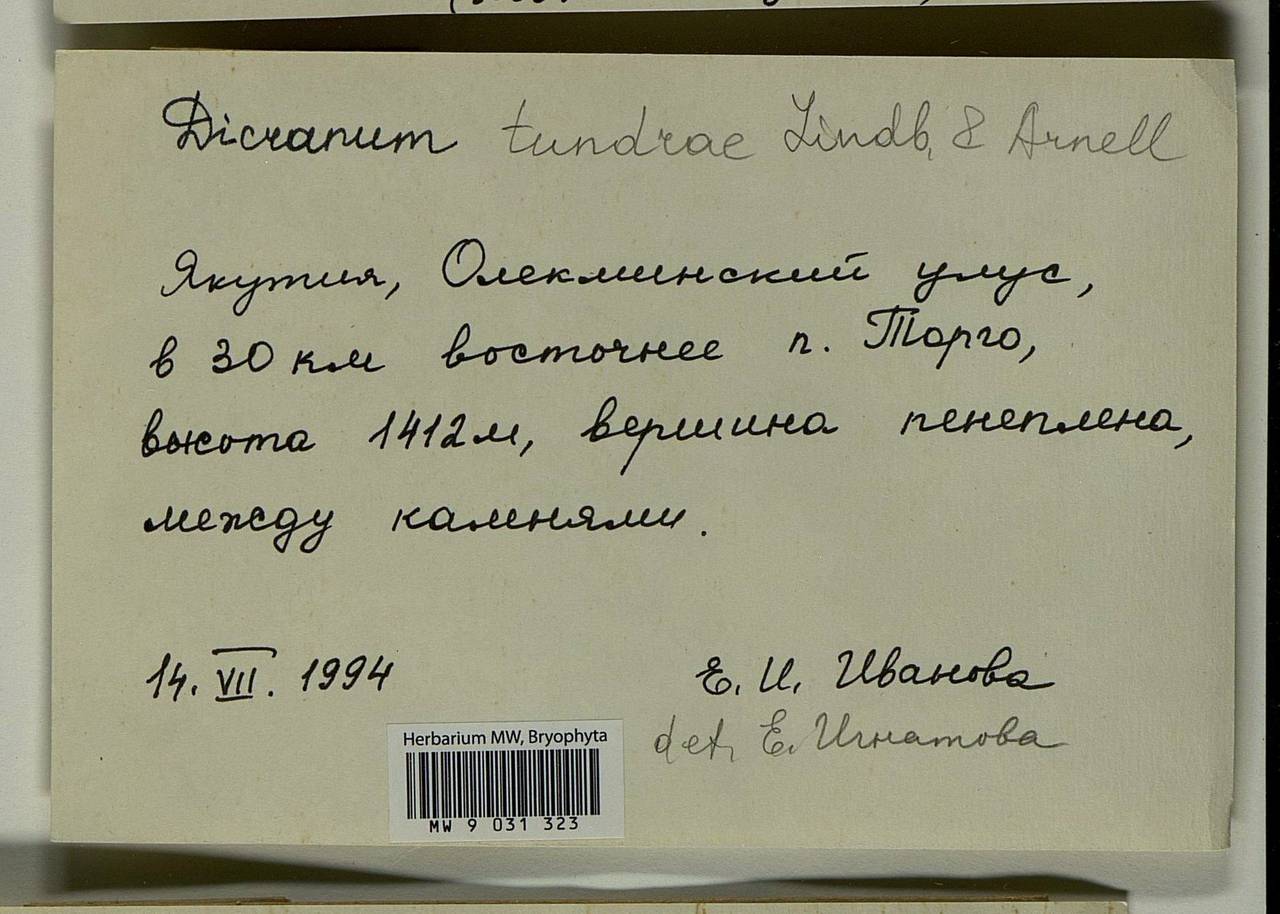 Dicranum tundrae Lindb. & Arnell
Якутия, Олекминский улус,
в 30 км восточнее п. Торго,
высота 1412м, вершина пенеплена,
между камнями.
14. VII. 1994
Е. И. Иванова
det. Е. Игнатова
Herbarium MW, Bryophyta
MW 9 031 323